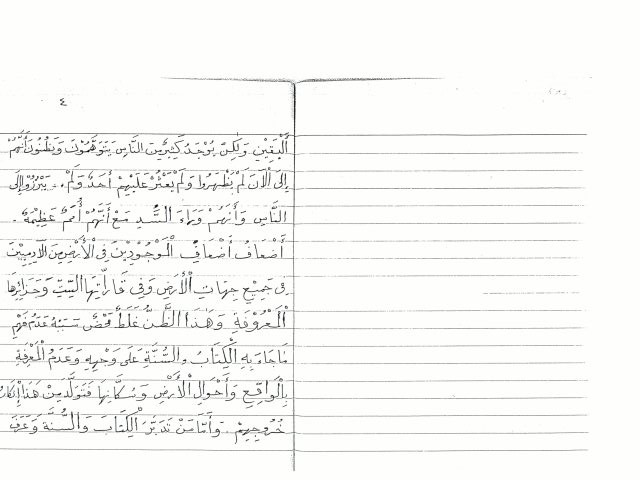 ٤
الْيَقِيْنِ وَلٰكِنْ يُوْجَدُ كَثِيْرٌ مِنَ النَّاسِ يَتَوَهَّمُوْنَ وَيَظُنُّوْنَ أَنَّهُمْ
إِلَى الْآنَ لَمْ يَظْهَرُوا وَلَمْ يَعْثُرْ عَلَيْهِمْ أَحَدٌ وَلَمْ .. يَبْرُزُوْا إِلَى
النَّاسِ وَأَنَّهُمْ وَرَاءَ السَّدِّ مَعْ أَنَّهُمْ أُمَمٌ عَظِيْمَةٌ .
أَضْعَافُ أَضْعَافِ الْمَوْجُوْدِيْنَ فِي الْأَرْضِ مِنَ الْآدَمِيِّيْنَ
فِي جَمِيْعِ جِهَاتِ الْأَرْضِ وَفِي قَارَّاتِهَا السِّتِّ وَجَزَائِرِهَا
الْمَعْرُوْفَةِ وَهٰذَا الظَّنُّ غَلَطٌ مَحْضٌ سَبَبُهُ عَدَمُ فَهْمِ
مَا جَاءَ بِهِ الْكِتَابُ وَالسُّنَّةِ عَلَى وَجْهِهِ وَعَدَمُ الْمَعْرِفَةِ
بِالْوَاقِعِ وَأَحْوَالِ الْأَرْضِ وَسُكَّانِهَا فَتَوَلَّدَ مِنْ هَذَا إِنْكَارُ
خُرُوْجِهِمْ . وَأَمَّا مَنْ تَدَبَّرَ الْكِتَابَ وَالسُّنَّةَ وَعَرَفَ